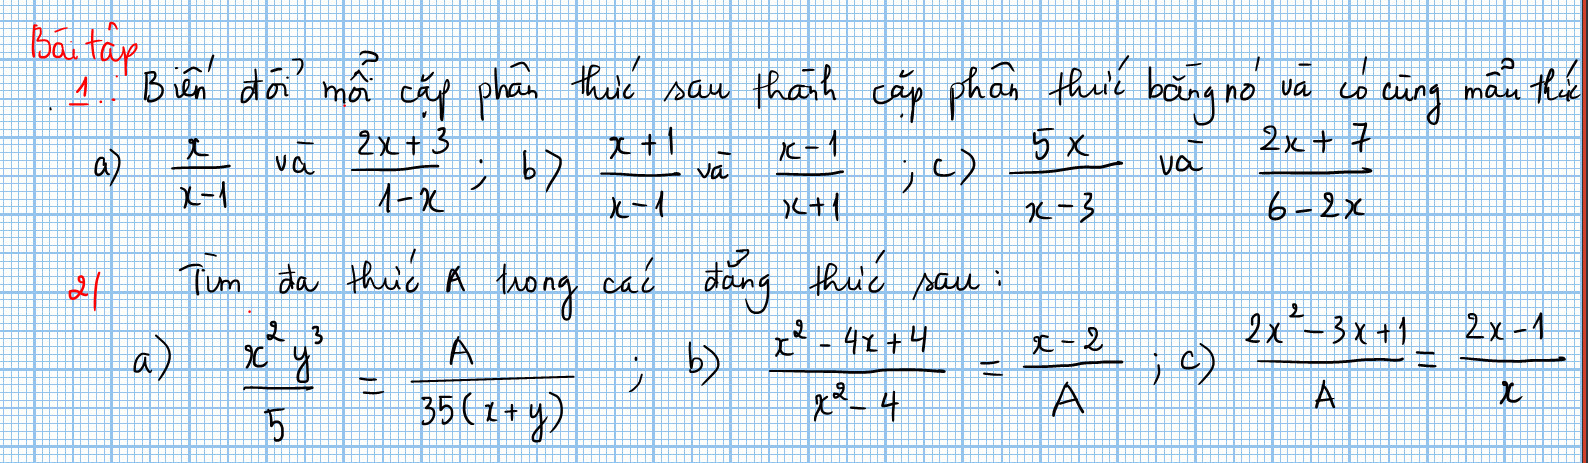 Bài tập
1. : Biến đổi mỗi cặp phân thức sau thành cặp phân thức bằng nó và có cùng mẫu thức
a) x/(x-1) và (2x+3)/(1-x) ; b) (x+1)/(x-1) và (x-1)/(x+1) ; c) 5x/(x-3) và (2x+7)/(6-2x)
2/ Tìm đa thức A trong các đẳng thức sau :
a) x²y³/5 = A/(35(x+y)) ; b) (x²-4x+4)/(x²-4) = (x-2)/A ; c) (2x²-3x+1)/A = (2x-1)/x